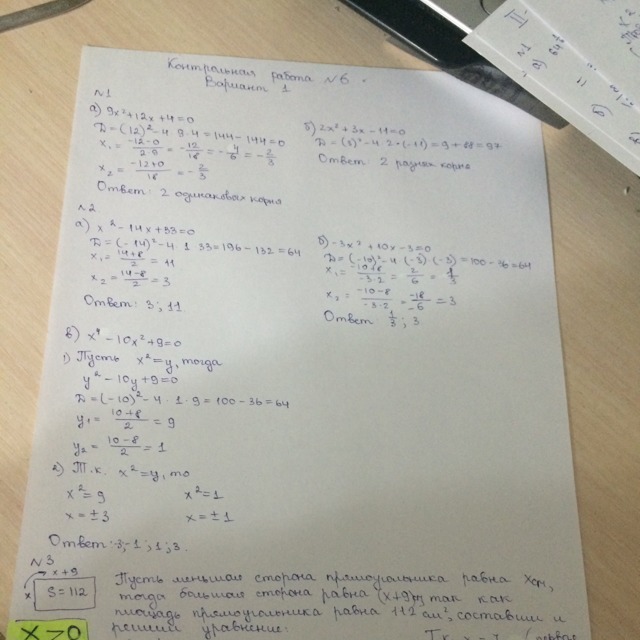 Контрольная работа №6.
Вариант 1
№1
а) 9x²+12x+4=0
Д=(12)²-4·9·4=144-144=0
x₁= (-12-0)/(2·9) = -12/18 = -4/6 = -2/3
x₂= (-12+0)/18 = -2/3
Ответ: 2 одинаковых корня
б) 2x²+3x-11=0
Д=(3)²-4·2·(-11)=9+88=97
Ответ: 2 разных корня
№2
а) x²-14x+33=0
Д=(-14)²-4·1·33=196-132=64
x₁= (14+8)/2 = 11
x₂= (14-8)/2 = 3
Ответ: 3; 11
б) -3x²+10x-3=0
Д=(-10)²-4·(-3)·(-3)=100-36=64
x₁= (-10+8)/(-3·2) = 2/6 = 1/3
x₂= (-10-8)/(-3·2) = -18/-6 = 3
Ответ 1/3; 3
в) x⁴-10x²+9=0
1) Пусть x²=y, тогда
y²-10y+9=0
Д=(-10)²-4·1·9=100-36=64
y₁= (10+8)/2 = 9
y₂= (10-8)/2 = 1
2) Т.к. x²=y, то
x²=9 x²=1
x=±3 x=±1
Ответ: 3;-1;1;3.
№3
x+9
x S=112
Пусть меньшая сторона прямоугольника равна x см,
тогда большая сторона равна (x+9), так как
площадь прямоугольника равна 112 см², составим и
решим уравнение:
x>0